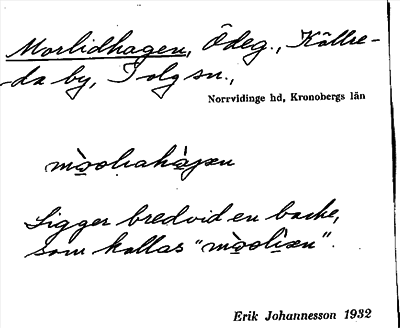 Morlidhagen, Ödeg., Källre-
-da by, Tolg sn.,
Norrvidinge hd, Kronobergs län
Ligger bredvid en backe,
som kallas "
Erik Johannesson 1932